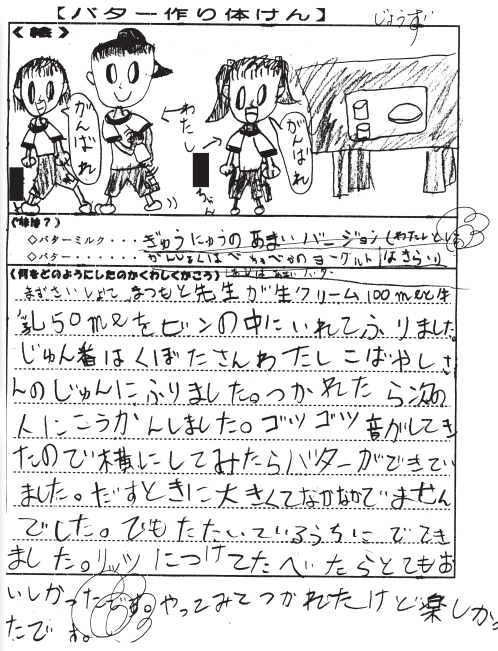 【バター作り体けん】
じょうず
《絵》
がんばれ
わたし
がんばれ
(味は?)
◇バターミルク・・・ぎゅうにゅうのあまいバージョン(わたしとし
◇バター・・・・・・ ヨーグルト はきらい)
(何をどのようにしたのかくわしくかこう) あまい バター
まずさいしょて まつもと先生が生クリーム100mlと牛
乳50mlをビンの中にいれてふりました。
じゅん番はくぼたさんわたしこばやしさ
んのじゅんにふりました。つかれたら次の
人にこうかんしました。ゴツゴツ音がしてき
たので横にしてみたらバターができてい
ました。だすときに大きくてなかなかでません
でした。でもたたいているうちにでてき
ました。リッツにつけてたべたらとてもお
いしかったです。やってみてつかれたけど楽しかっ
たです。